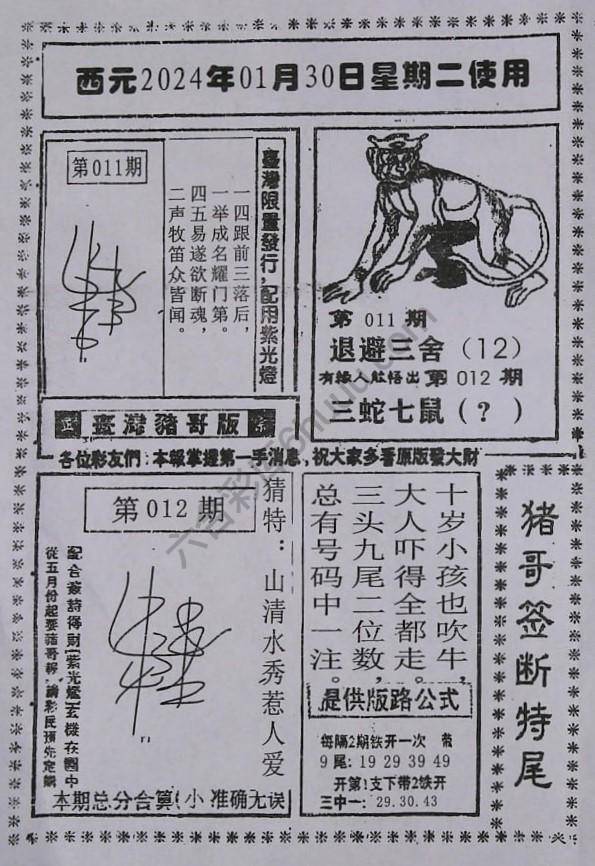 西元2024年01月30日星期二使用
第011期
臺灣限量發行,配用紫光燈
一四跟前三落后,
一举成名耀门第。
四五易遂欲断魂,
二声牧笛众皆闻。
臺灣豬哥版
第011期
退避三舍(12)
有緣人能悟出第012期
三蛇七鼠(?)
各位彩友們:本報掌握第一手消息,祝大家多看原版發大財
第012期
猜特:山清水秀惹人爱
從五月份起要豬哥報,請彩民預先定購
本期总分合算(小 准确无误
十岁小孩也吹牛,
大人吓得全都走。
三头九尾二位数,
总有号码中一注。
提供版路公式
每隔2期铁开一次 带
9尾)19 29 39 49
开第1支下带2铁开
三中一:29.30.43
猪哥签断特尾
六合彩库